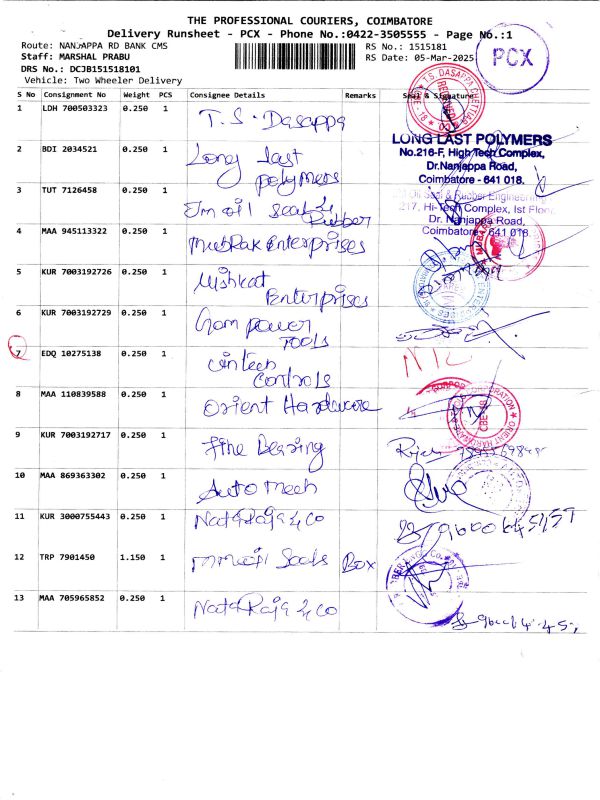 THE PROFESSIONAL COURIERS, COIMBATORE
Delivery Runsheet - PCX - Phone No.:0422-3505555 - Page No.:1
Route: NANJAPPA RD BANK CMS
RS No.: 1515181
Staff: MARSHAL PRABU
RS Date: 05-Mar-2025
PCX
DRS No.: DCJB151518101
Vehicle: Two Wheeler Delivery
S No Consignment No Weight PCS Consignee Details Remarks Seal & Signature
1 LDH 700503323 0.250 1 T.S. Dasappa
T.S. DASAPPA CHETTIAR
RECEIVED
2 BDI 2034521 0.250 1 Long last
polymers
LONG LAST POLYMERS
No.216-F, High Tech Complex,
Dr.Nanjappa Road,
Coimbatore - 641 018.
3 TUT 7126458 0.250 1 Em oil Seal &
Rubber
Oil Seal & Rubber Engineering
217, Hi-Tech Complex, Ist Floor,
Dr. Nanjappa Road,
Coimbatore - 641 018.
4 MAA 945113322 0.250 1 Mubrak Enterprises
5 KUR 7003192726 0.250 1 Mishkat
Enterprises
6 KUR 7003192729 0.250 1 Gom power
Tools
7 EDQ 10275138 0.250 1 Cintech
Controls
NIL
8 MAA 110839588 0.250 1 Orient Hardware
ORIENT HARDWARE
CORPORATION
CBE-18
9 KUR 7003192717 0.250 1 fine Bearing
10 MAA 869363302 0.250 1 Auto Mech
11 KUR 3000755443 0.250 1 NataRaja & Co
12 TRP 7901450 1.150 1 mm oil Seals Box
13 MAA 705965852 0.250 1 NataRaja & Co